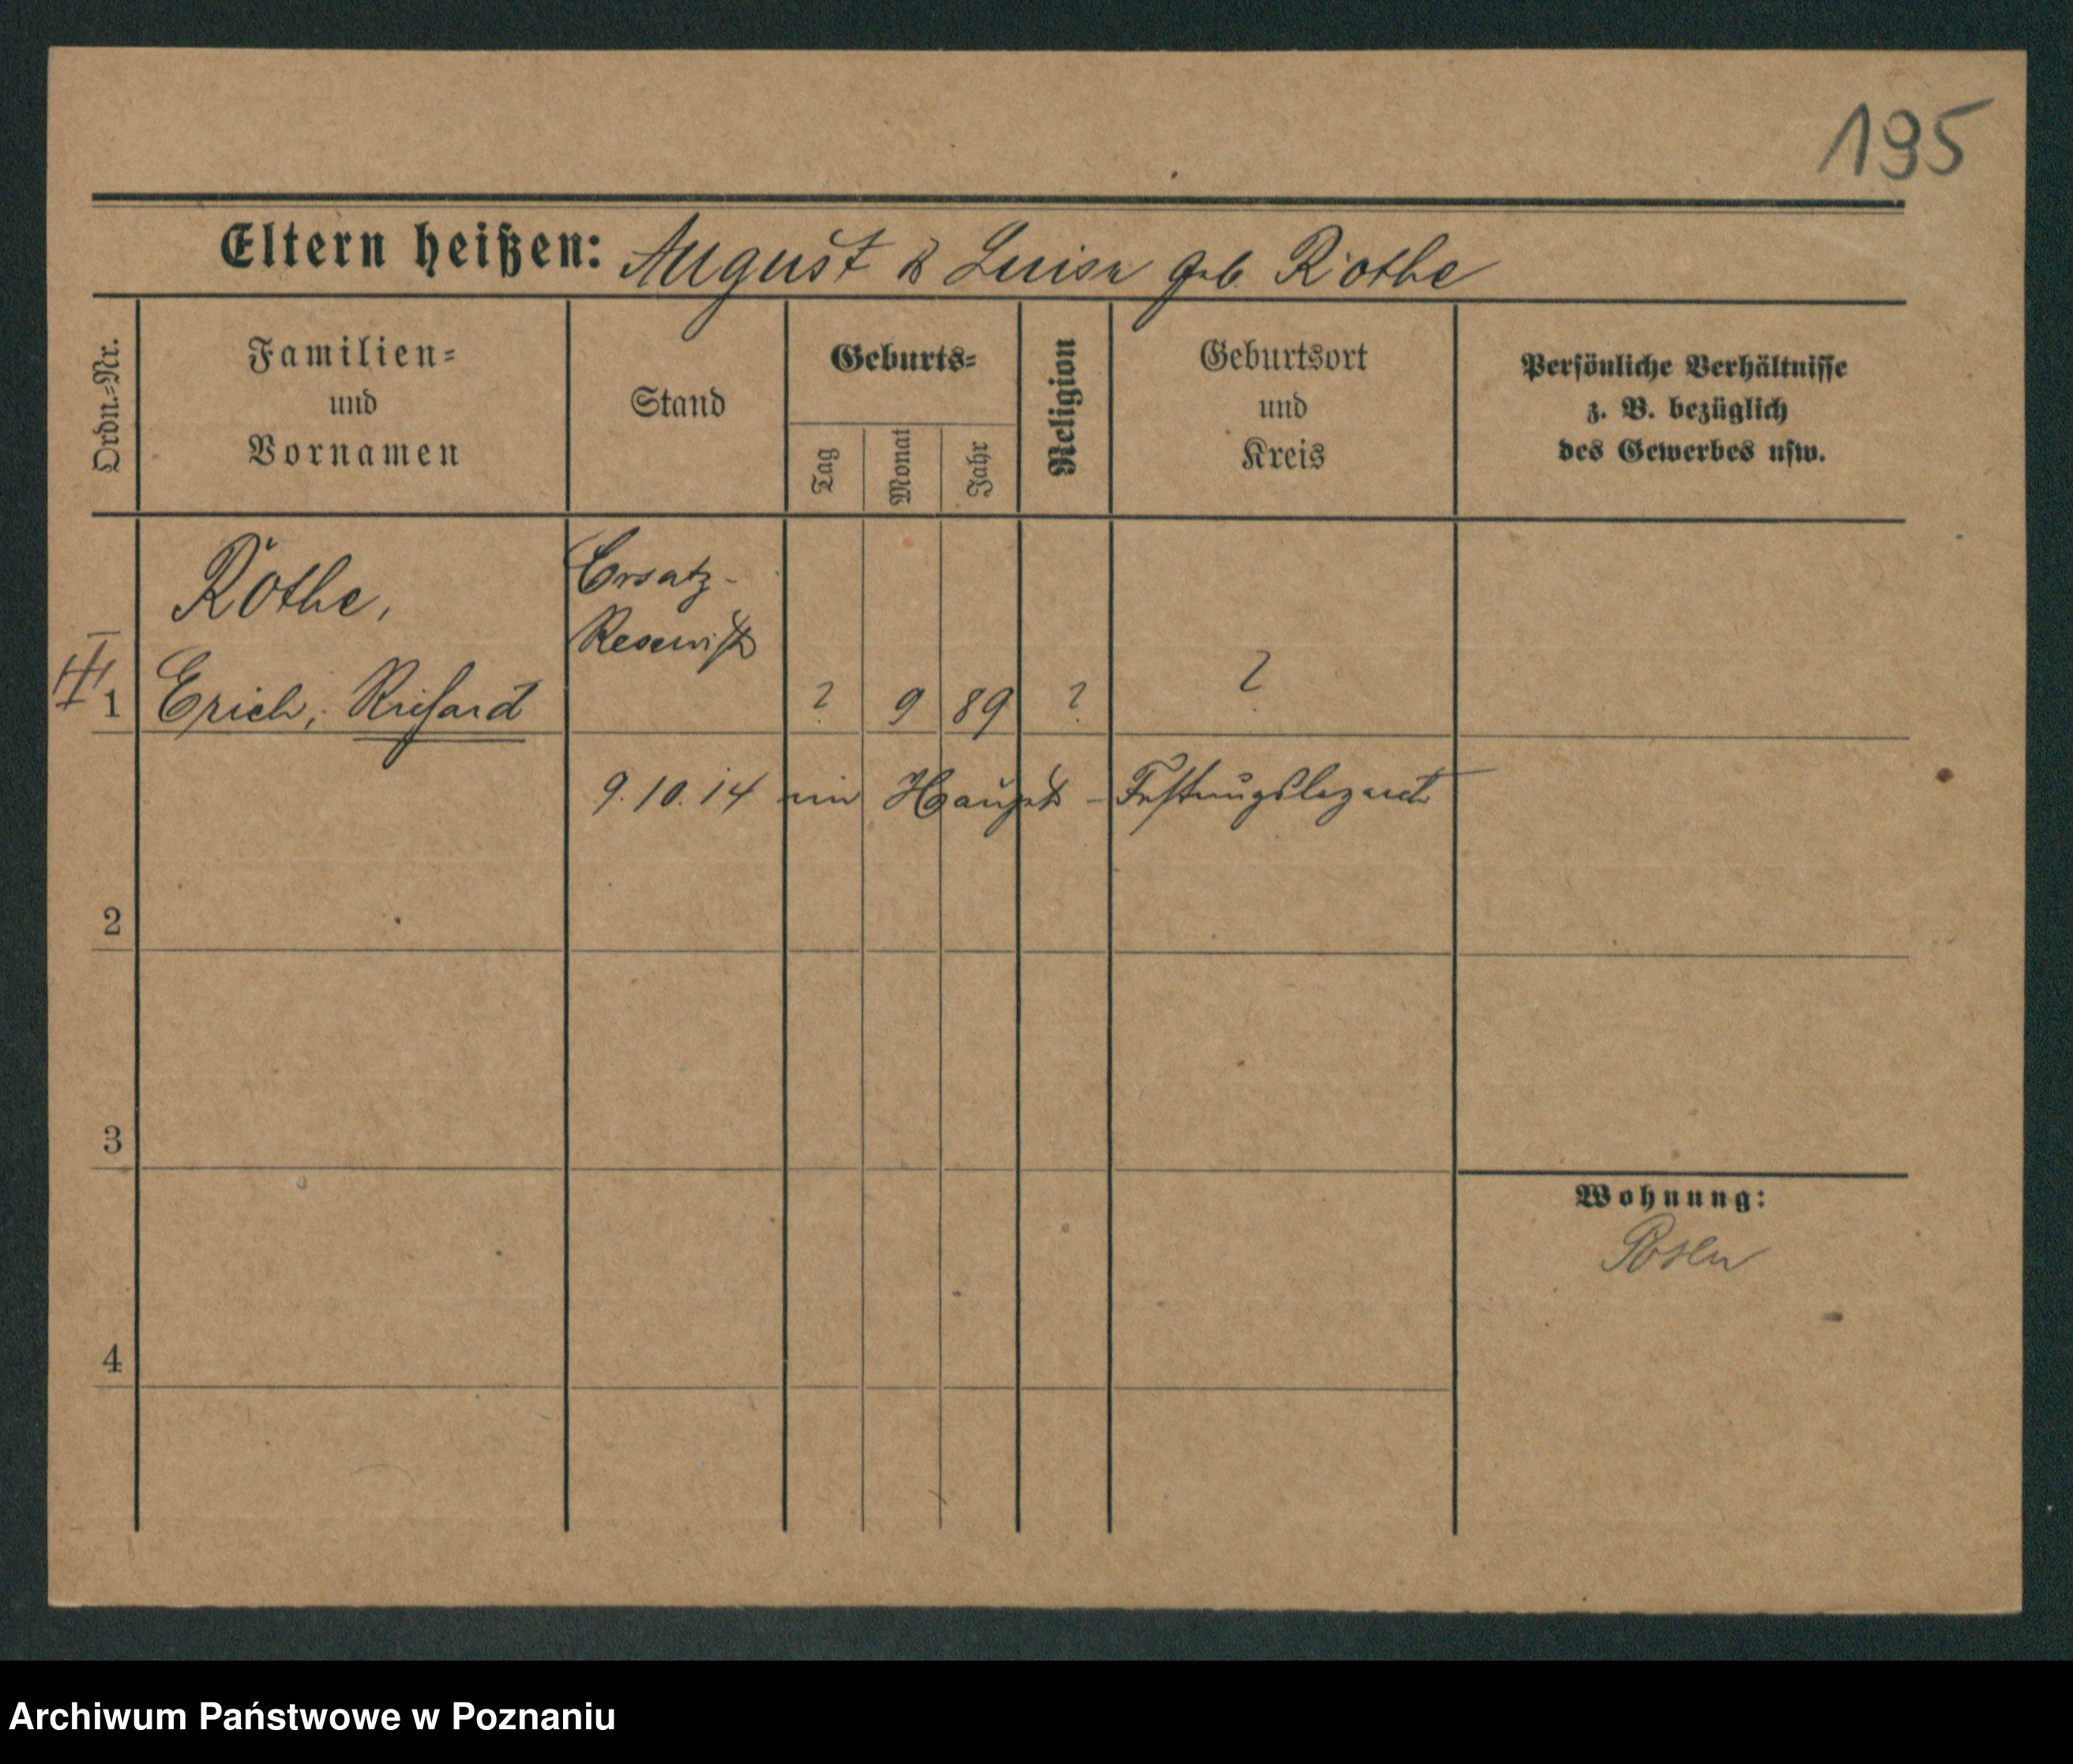 195
Eltern heißen: August & Luise geb. Röthe
Ordn.-Nr.
Familien-
und
Vornamen
Stand
Geburts-
Tag
Monat
Jahr
Religion
Geburtsort
und
Kreis
Persönliche Verhältnisse
z. B. bezüglich
des Gewerbes usw.
Röthe,
Ersatz-
Reservist
III
1 Erich, Richard ? 9 89 ? ?
9.10.14 im Haupt-Festungslazarett
2
3
Wohnung:
Posen
4
Archiwum Państwowe w Poznaniu